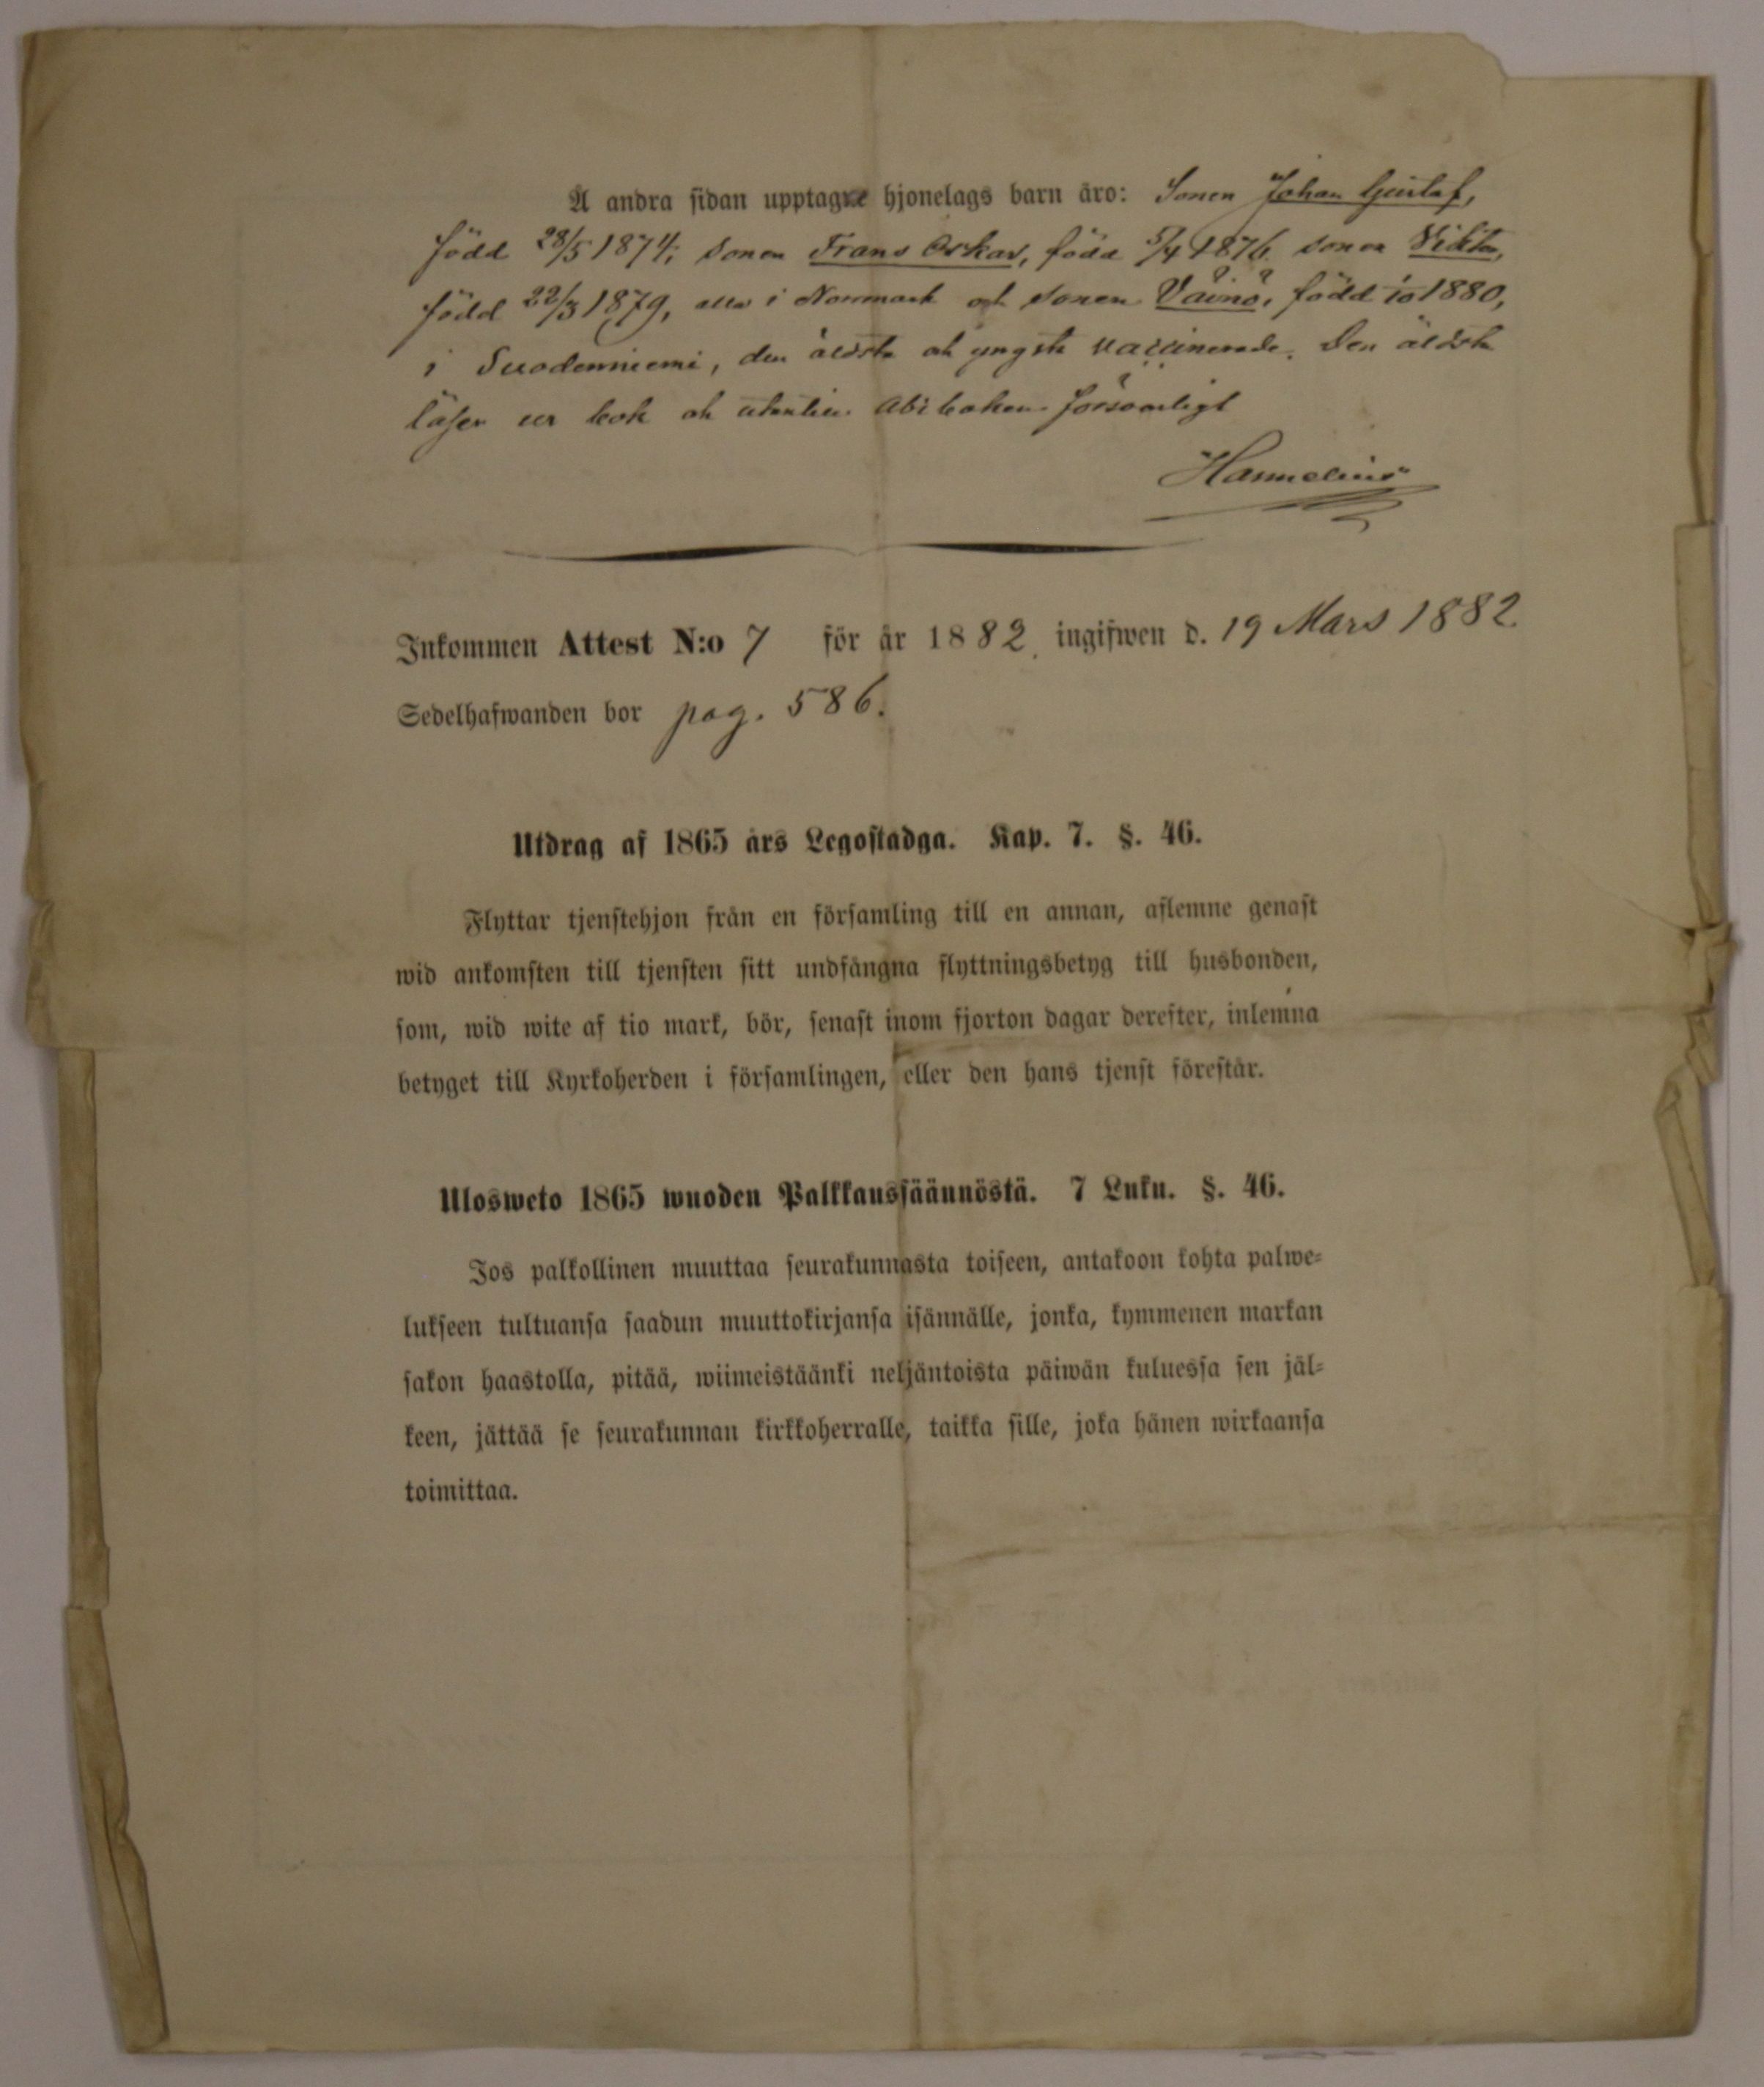 Å andra sidan upptagne hjonelags barn äro: Sonen Johan Gustaf,
född 28/5 1874, Sonen Frans Oskar, född 5/4 1876 sonen Viktor,
född 22/3 1879, alla i Norrmark och sonen Väinö, född 1880,
i Suodenniemi, den äldste och yngste vaccinerade. Den äldste
läser ur bok och utantill Abiboken försvarligt
Hannelius
Inkommen Attest N:o 7 för år 1882 ingifwen d. 19 Mars 1882.
Sedelhafwanden bor pag. 586.
Utdrag af 1865 års Legostadga. Kap. 7. §. 46.
Flyttar tjenstehjon från en församling till en annan, aflemne genast
wid ankomsten till tjensten sitt undfångna flyttningsbetyg till husbonden,
som, wid wite af tio mark, bör, senast inom fjorton dagar derefter, inlemna
betyget till Kyrkoherden i församlingen, eller den hans tjenst förestår.
Ulosweto 1865 wuoden Palkkaussäännöstä. 7 Luku. §. 46.
Jos palkollinen muuttaa seurakunnasta toiseen, antakoon kohta palwe=
lukseen tultuansa saadun muuttokirjansa isännälle, jonka, kymmenen markan
sakon haastolla, pitää, wiimeistäänki neljäntoista päiwän kuluessa sen jäl=
keen, jättää se seurakunnan kirkkoherralle, taikka sille, joka hänen wirkaansa
toimittaa.